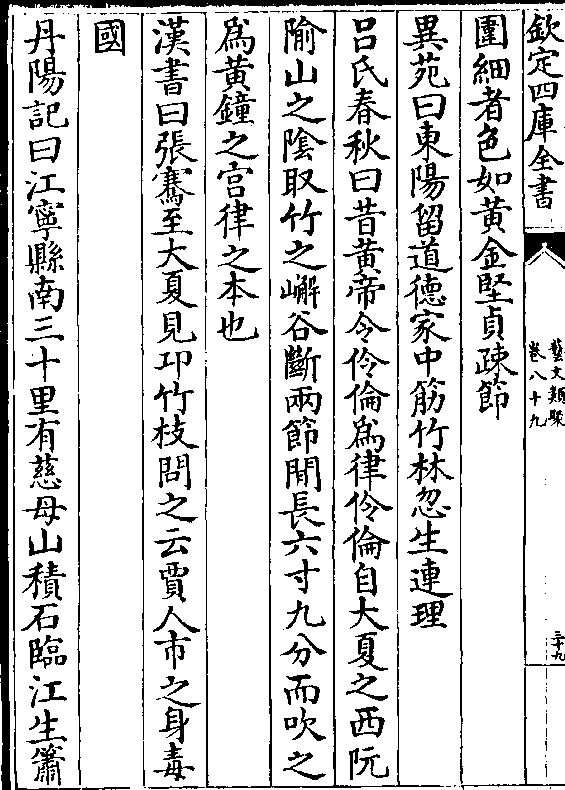 欽定四庫全書
藝文類聚
卷八十九
三十九
圍細者色如黃金堅貞疎節
異苑曰東陽留道德家中筋竹林忽生連理
呂氏春秋曰昔黃帝令伶倫為律伶倫自大夏之西阮
隃山之陰取竹之嶰谷斷兩節間長六寸九分而吹之
為黃鐘之宮律之本也
漢書曰張騫至大夏見邛竹枝問之云賈人市之身毒
國
丹陽記曰江寧縣南三十里有慈母山積石臨江生簫